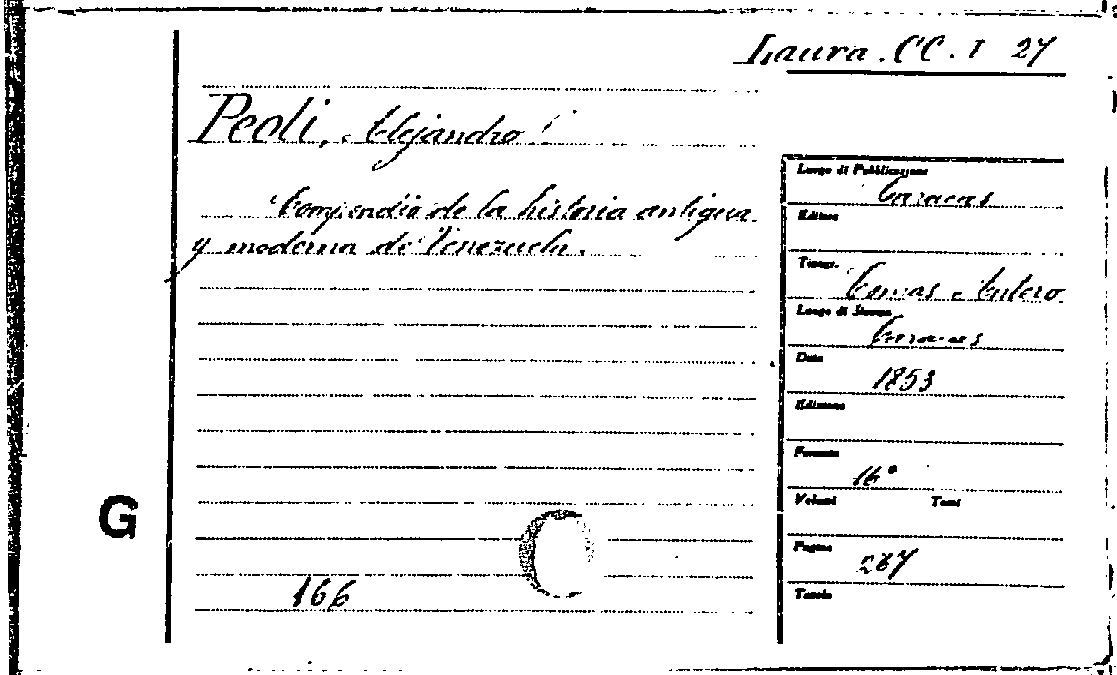 Laura. CC. I 27
Peoli, Alejandro
Compendio de la historia antigua
y moderna de Venezuela.
Luogo di Pubblicazione
Caracas
Editore
Tipogr.
Tomas Antero
Luogo di Stampa
Caracas
Data
1853
Edizione
Formato
16°
Volumi Tomi
Pagine
267
Tavole
G
166